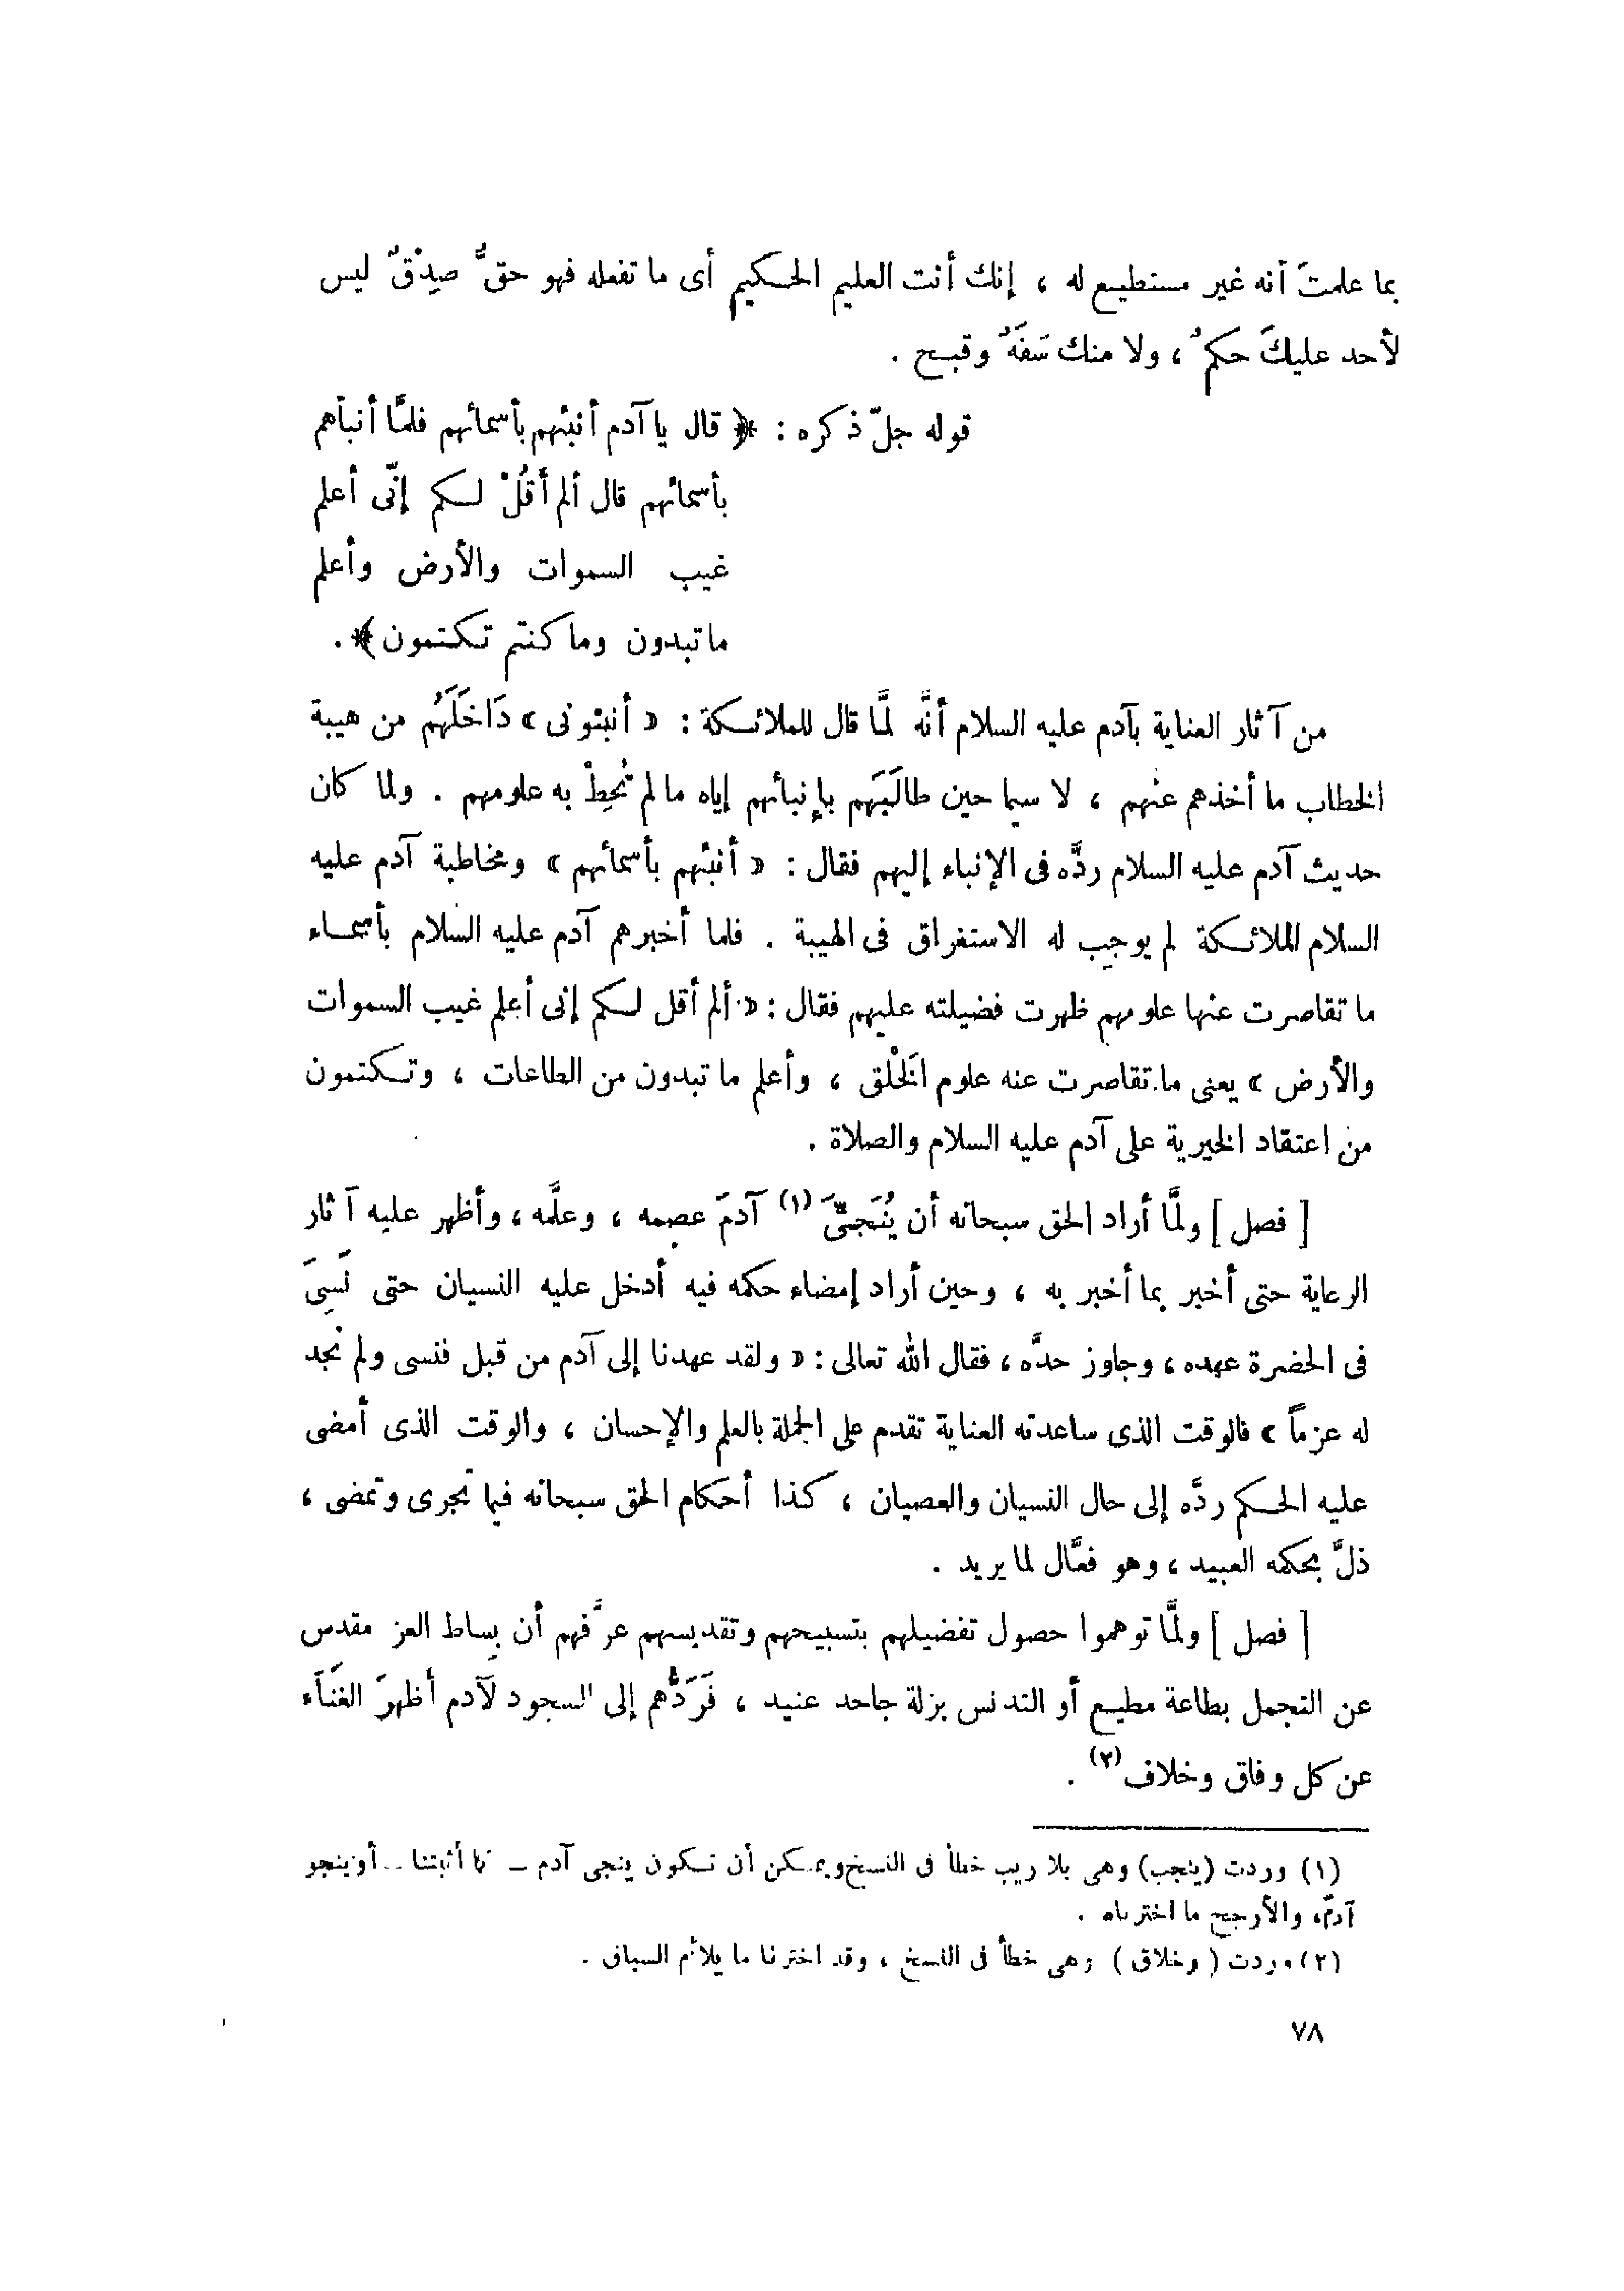 بما علمتَ أنه غير مستطيع له ، إنك أنت العليم الحكيم أى ما تفعله فهو حقٌّ صِدْقٌ ليس
لأحد عليكَ حكمٌ ، ولا منك سَفَهٌ وقبح .
قوله جلّ ذكره : ﴿ قال يا آدم أنبئهم بأسمائهم فلمَّا أنبأهم
بأسمائهم قال ألم أَقُلْ لكم إنّى أعلم
غيب السموات والأرض وأعلم
ما تبدون وما كنتم تكتمون ﴾ .
من آثار العناية بآدم عليه السلام أنَّه لمَّا قال للملائكة : « أنبئونى » دَاخَلَهُم من هيبة
الخطاب ما أخذهم عنهم ، لا سيما حين طالَبَهم بإنبائهم إياه ما لم تُحِطْ به علومهم . ولما كان
حديث آدم عليه السلام ردَّه فى الإنباء إليهم فقال : « أنبئهم بأسمائهم » ومخاطبة آدم عليه
السلام الملائكة لم يوجِب له الاستغراق فى الهيبة . فلما أخبرهم آدم عليه السلام بأسماء
ما تقاصرت عنها علومهم ظهرت فضيلته عليهم فقال : « ألم أقل لكم إنى أعلم غيب السموات
والأرض » يعنى ما تقاصرت عنه علوم الخَلْق ، وأعلم ما تبدون من الطاعات ، وتكتمون
من اعتقاد الخيرية على آدم عليه السلام والصلاة .
[ فصل ] ولمَّا أراد الحق سبحانه أن يُنَجِّىَ (١) آدمَ عصمه ، وعلَّمه ، وأظهر عليه آثار
الرعاية حتى أخبر بما أخبر به ، وحين أراد إمضاء حكمه فيه أدخل عليه النسيان حتى نَسِىَ
فى الحضرة عهده ، وجاوز حدَّه ، فقال الله تعالى : « ولقد عهدنا إلى آدم من قبل فنسى ولم نجد
له عزماً » فالوقت الذى ساعدته العناية تقدم على الجملة بالعلم والإحسان ، والوقت الذى أمضى
عليه الحكم ردَّه إلى حال النسيان والعصيان ، كذا أحكام الحق سبحانه فيما تجرى وتمضى ،
ذلَّ بحكمه العبيد ، وهو فعَّال لما يريد .
[ فصل ] ولمَّا توهموا حصول تفضيلهم بتسبيحهم وتقديسهم عرَّفهم أن بِساط العز مقدس
عن التجمل بطاعة مطيع أو التدنس بزلة جاحد عنيد ، فَرَدَّهم إلى السجود لآدم أظهرَ الغَنَاء
عن كل وفاق وخلاف (٢) .
(١) وردت (ينجب) وهى بلا ريب خطأ فى النسخ ويمكن أن تكون ينجى آدم – كما أثبتنا – أو ينجو
آدمُ، والأرجح ما اخترناه .
(٢) وردت ( وخلاق ) وهى خطأ فى النسخ ، وقد اخترنا ما يلائم السياق .
٧٨